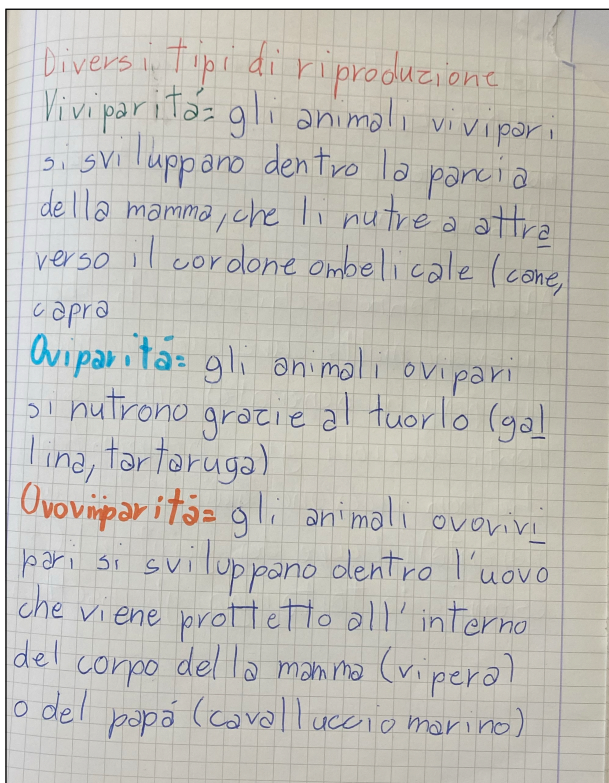 Diversi tipi di riproduzione
Viviparitá= gli animali vivipari
si sviluppano dentro la pancia
della mamma, che li nutre a attra
verso il cordone ombelicale (cane,
capra
Oviparitá= gli animali ovipari
si nutrono grazie al tuorlo (gal
lina, tartaruga)
Ovoviviparitá= gli animali ovovivi
pari si sviluppano dentro l'uovo
che viene prottetto all'interno
del corpo della mamma (vipera)
o del papá (cavalluccio marino)